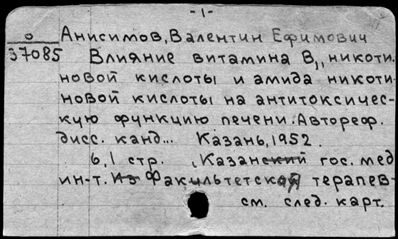 -1-
О
37085
Анисимов, Валентин Ефимович
Влияние витамина В1, никоти-
новой кислоты и амида никоти-
новой кислоты на антитоксичес-
кую функцию печени. Автореф.
дисс. канд... Казань, 1952.
6,1 стр. , Казанский гос. мед.
ин-т. Из Факультетской терапев-
см. след. карт.